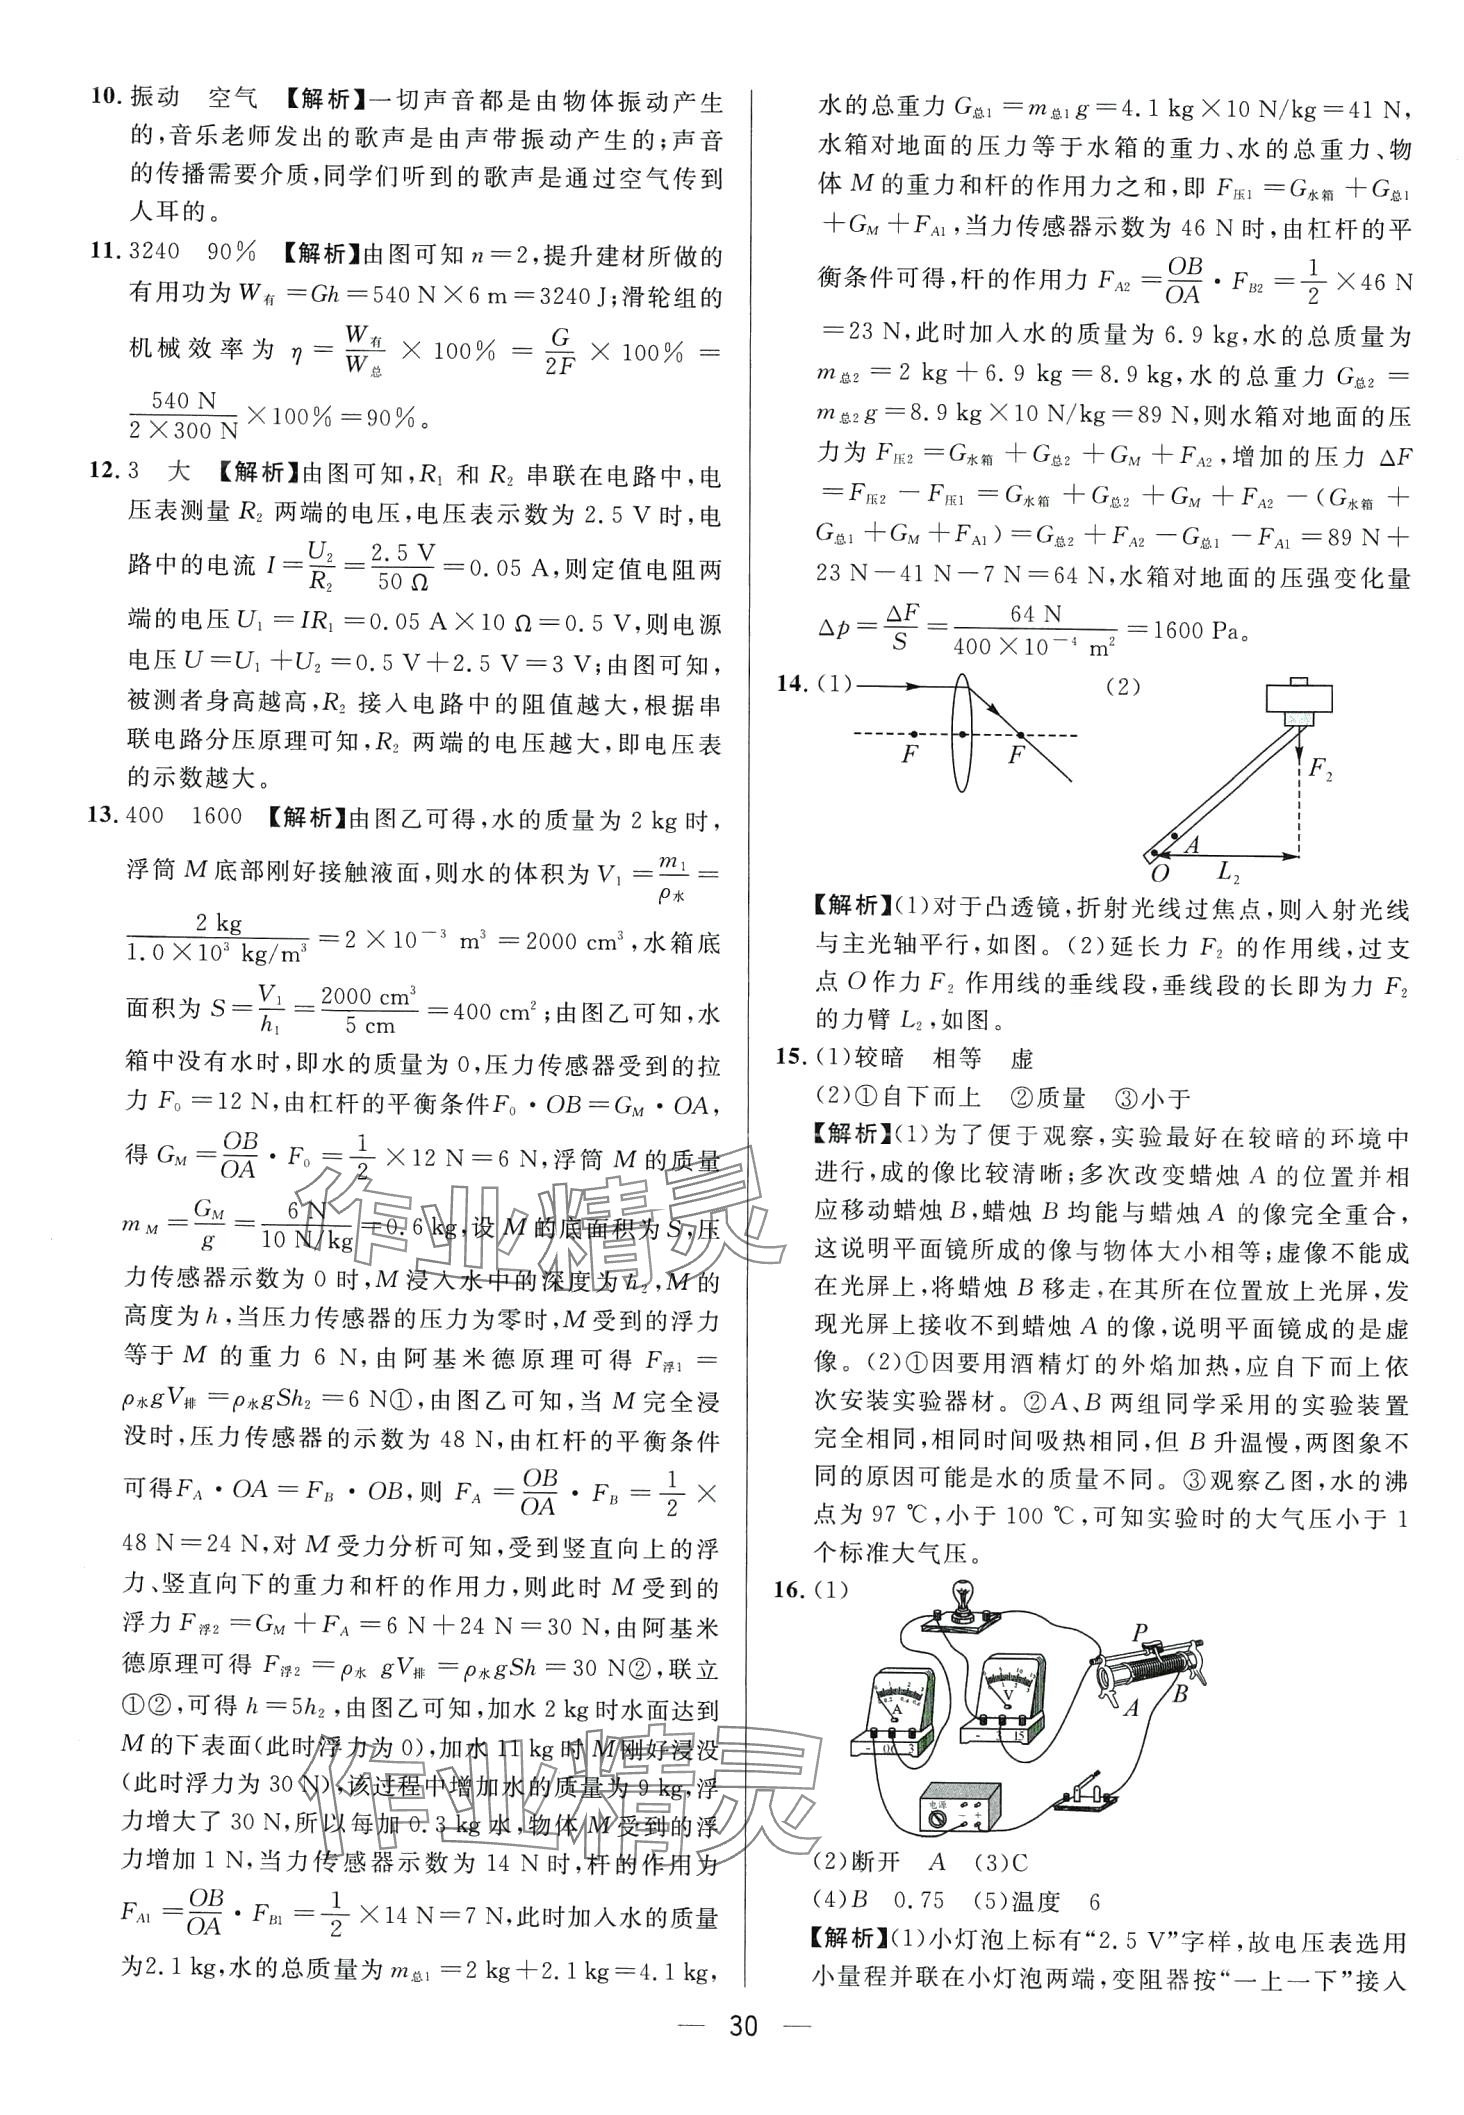 10. 振动 空气 【解析】一切声音都是由物体振动产生
的,音乐老师发出的歌声是由声带振动产生的;声音
的传播需要介质,同学们听到的歌声是通过空气传到
人耳的。
11. 3240 90% 【解析】由图可知 n=2,提升建材所做的
有用功为 W有=Gh=540 N×6 m=3240 J;滑轮组的
机械效率为 η=W有/W总×100%=G/2F×100%=
540 N/(2×300 N)×100%=90%。
12. 3 大 【解析】由图可知,R₁ 和 R₂ 串联在电路中,电
压表测量 R₂ 两端的电压,电压表示数为 2.5 V 时,电
路中的电流 I=U₂/R₂=2.5 V/50 Ω=0.05 A,则定值电阻两
端的电压 U₁=IR₁=0.05 A×10 Ω=0.5 V,则电源
电压 U=U₁+U₂=0.5 V+2.5 V=3 V;由图可知,
被测者身高越高,R₂ 接入电路中的阻值越大,根据串
联电路分压原理可知,R₂ 两端的电压越大,即电压表
的示数越大。
13. 400 1600 【解析】由图乙可得,水的质量为 2 kg 时,
浮筒 M 底部刚好接触液面,则水的体积为 V₁=m₁/ρ水=
2 kg/(1.0×10³ kg/m³)=2×10⁻³ m³=2000 cm³,水箱底
面积为 S=V₁/h₁=2000 cm³/5 cm=400 cm²;由图乙可知,水
箱中没有水时,即水的质量为 0,压力传感器受到的拉
力 F₀=12 N,由杠杆的平衡条件F₀·OB=G_M·OA,
得 G_M=OB/OA·F₀=1/2×12 N=6 N,浮筒 M 的质量
m_M=G_M/g=6 N/(10 N/kg)=0.6 kg,设 M 的底面积为 S,压
力传感器示数为 0 时,M 浸入水中的深度为 h₂,M 的
高度为 h,当压力传感器的压力为零时,M 受到的浮力
等于 M 的重力 6 N,由阿基米德原理可得 F浮1=
ρ水gV排=ρ水gSh₂=6 N①,由图乙可知,当 M 完全浸
没时,压力传感器的示数为 48 N,由杠杆的平衡条件
可得F_A·OA=F_B·OB,则 F_A=OB/OA·F_B=1/2×
48 N=24 N,对 M 受力分析可知,受到竖直向上的浮
力、竖直向下的重力和杆的作用力,则此时 M 受到的
浮力 F浮2=G_M+F_A=6 N+24 N=30 N,由阿基米
德原理可得 F浮2=ρ水 gV排=ρ水gSh=30 N②,联立
①②,可得 h=5h₂,由图乙可知,加水 2 kg 时水面达到
M 的下表面(此时浮力为 0),加水 11 kg 时 M 刚好浸没
(此时浮力为 30 N),该过程中增加水的质量为 9 kg,浮
力增大了 30 N,所以每加 0.3 kg 水,物体 M 受到的浮
力增加 1 N,当力传感器示数为 14 N 时,杆的作用为
F_A1=OB/OA·F_B1=1/2×14 N=7 N,此时加入水的质量
为2.1 kg,水的总质量为 m总1=2 kg+2.1 kg=4.1 kg,
水的总重力 G总1=m总1g=4.1 kg×10 N/kg=41 N,
水箱对地面的压力等于水箱的重力、水的总重力、物
体 M 的重力和杆的作用力之和,即 F压1=G水箱+G总1
+G_M+F_A1,当力传感器示数为 46 N 时,由杠杆的平
衡条件可得,杆的作用力 F_A2=OB/OA·F_B2=1/2×46 N
=23 N,此时加入水的质量为 6.9 kg,水的总质量为
m总2=2 kg+6.9 kg=8.9 kg,水的总重力 G总2=
m总2g=8.9 kg×10 N/kg=89 N,则水箱对地面的压
力为 F压2=G水箱+G总2+G_M+F_A2,增加的压力 ΔF
=F压2-F压1=G水箱+G总2+G_M+F_A2-(G水箱+
G总1+G_M+F_A1)=G总2+F_A2-G总1-F_A1=89 N+
23 N-41 N-7 N=64 N,水箱对地面的压强变化量
Δp=ΔF/S=64 N/(400×10⁻⁴ m²)=1600 Pa。
14. (1) (2)
F F
F₂
A
O L₂
【解析】(1)对于凸透镜,折射光线过焦点,则入射光线
与主光轴平行,如图。(2)延长力 F₂ 的作用线,过支
点 O 作力 F₂ 作用线的垂线段,垂线段的长即为力 F₂
的力臂 L₂,如图。
15. (1)较暗 相等 虚
(2)①自下而上 ②质量 ③小于
【解析】(1)为了便于观察,实验最好在较暗的环境中
进行,成的像比较清晰;多次改变蜡烛 A 的位置并相
应移动蜡烛 B,蜡烛 B 均能与蜡烛 A 的像完全重合,
这说明平面镜所成的像与物体大小相等;虚像不能成
在光屏上,将蜡烛 B 移走,在其所在位置放上光屏,发
现光屏上接收不到蜡烛 A 的像,说明平面镜成的是虚
像。(2)①因要用酒精灯的外焰加热,应自下而上依
次安装实验器材。②A、B 两组同学采用的实验装置
完全相同,相同时间吸热相同,但 B 升温慢,两图象不
同的原因可能是水的质量不同。③观察乙图,水的沸
点为 97 ℃,小于 100 ℃,可知实验时的大气压小于 1
个标准大气压。
16. (1)
P
A B
A
V
- 0.6 3
- 3 15
电源
- +
(2)断开 A (3)C
(4)B 0.75 (5)温度 6
【解析】(1)小灯泡上标有“2.5 V”字样,故电压表选用
小量程并联在小灯泡两端,变阻器按“一上一下”接入
作业精灵
作业精灵
30